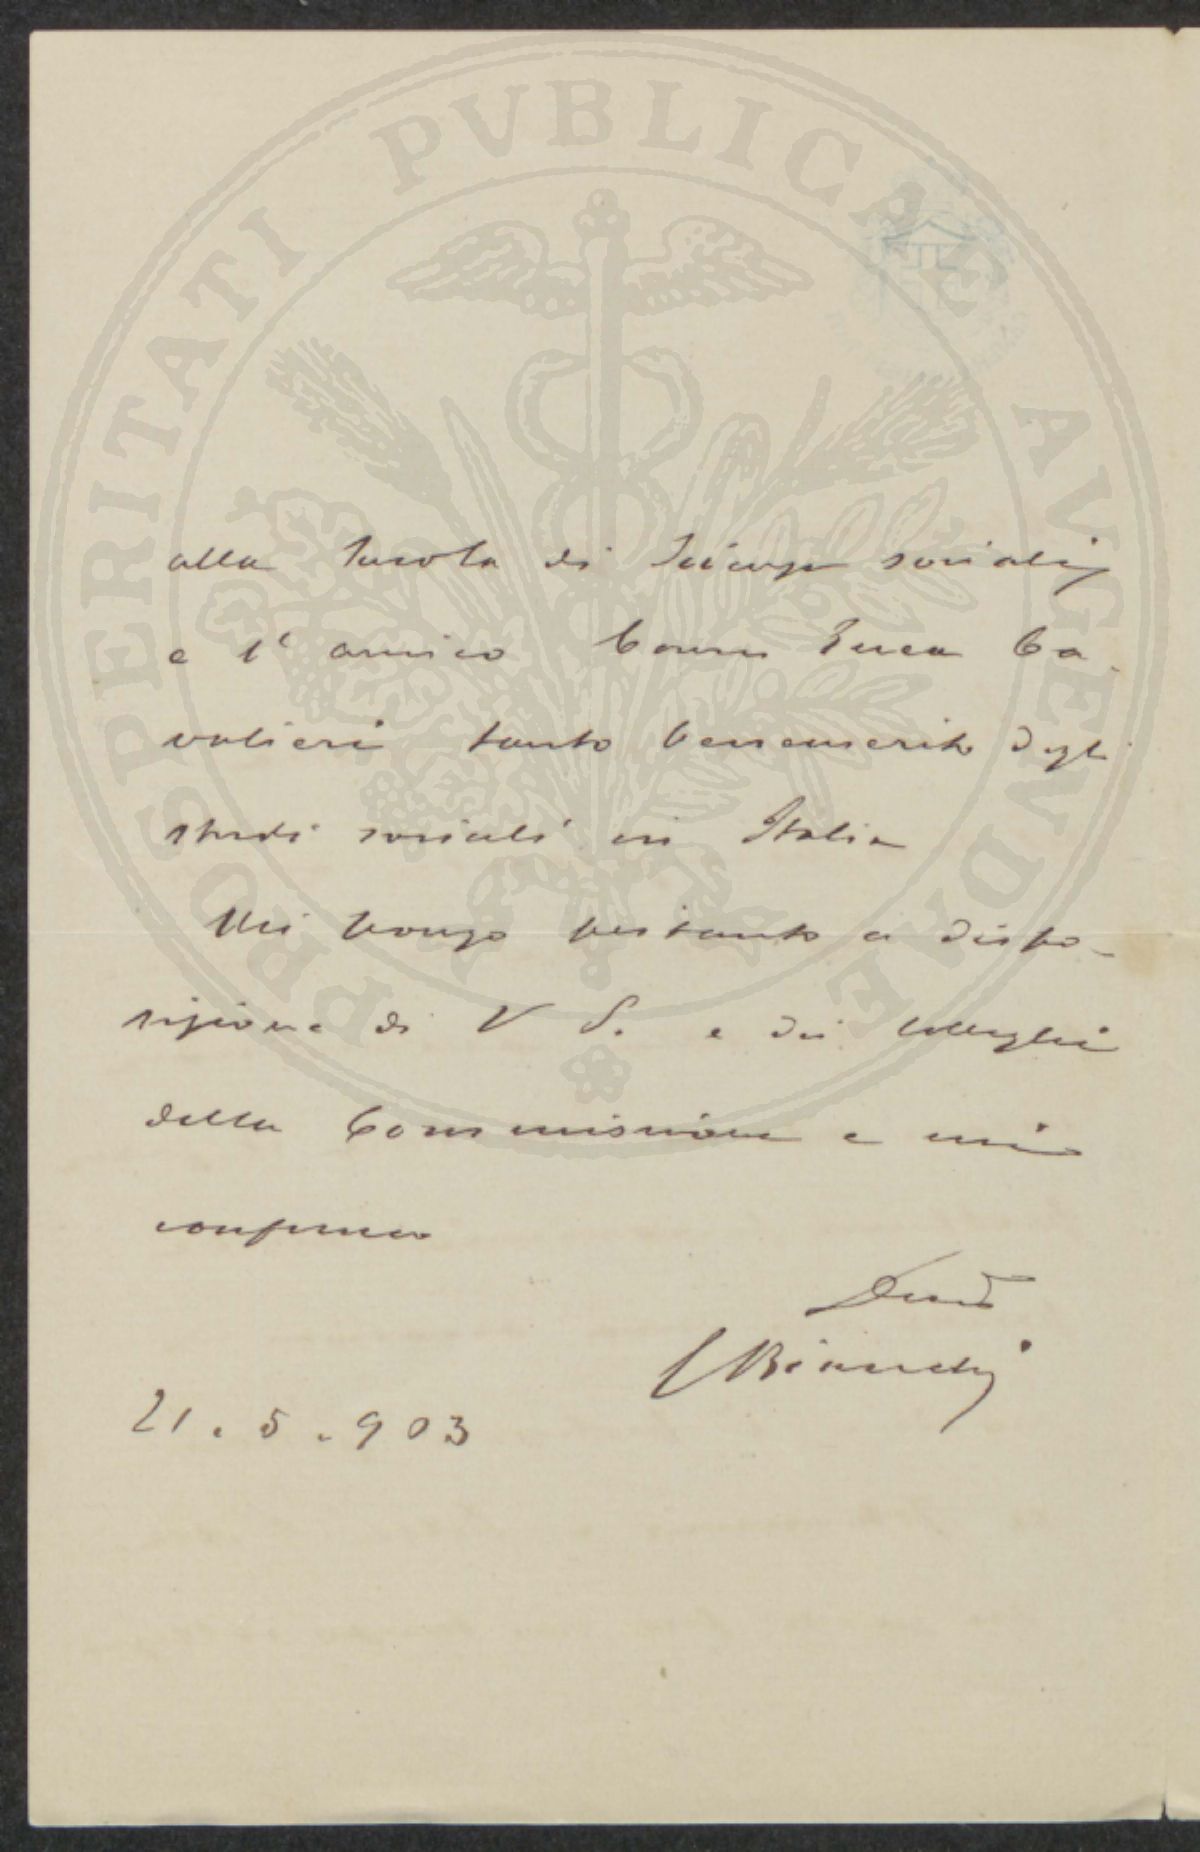 PROSPERITATI PVBLICAE AVGENDAE
alla Scuola di Scienze sociali
e l' amico Comm Enea Ca-
valieri tanto benemerito degli
studi sociali in Italia
Mi pongo pertanto a dispo-
sizione di V S. e dei colleghi
della Commissione e mi
confermo
Bianchi
21.5.903